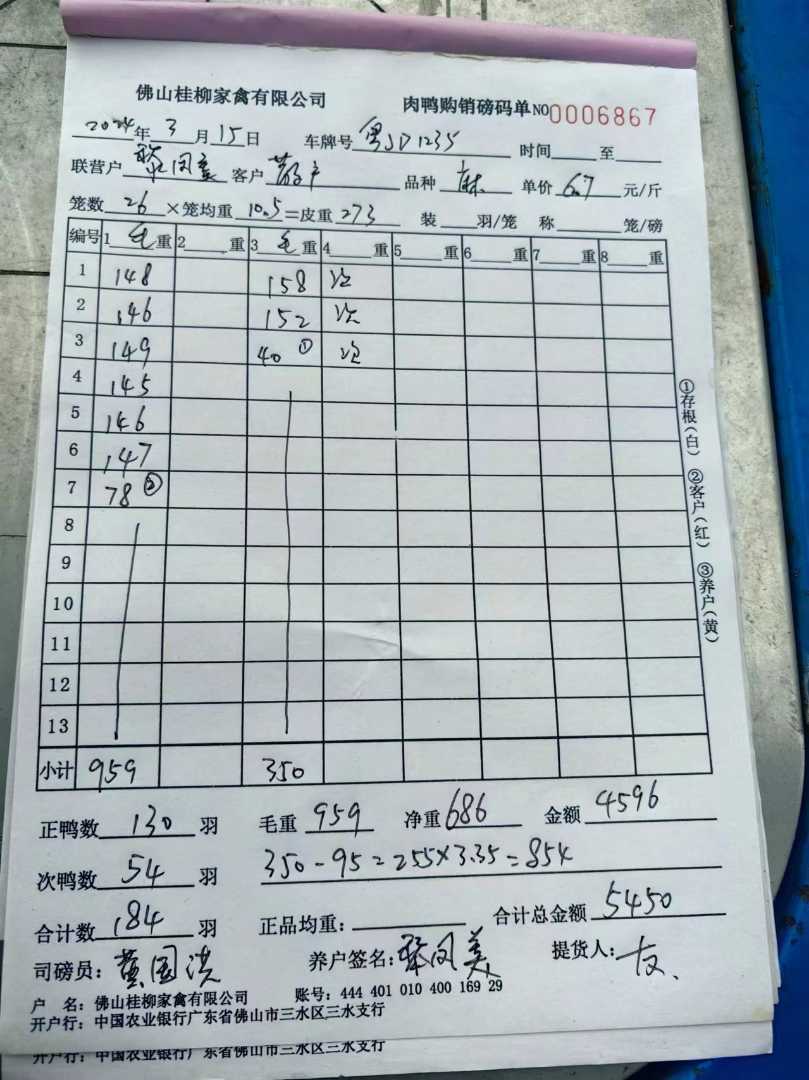 佛山桂柳家禽有限公司 肉鸭购销磅码单 NO 0006867
2024年3月15日 车牌号 粤JD1235 时间 至
联营户 客户 散户 品种 麻 单价 6.7 元/斤
笼数 26 ×笼均重 10.5 =皮重 273 装 羽/笼 称 笼/磅
编号 1 毛 重 2 重 3 毛 重 4 重 5 重 6 重 7 重 8 重
1 148 158 次
2 146 152 次
3 149 40 ① 次
4 145
5 146
6 147
7 78 ②
8
9
10
11
12
13
小计 959 350
正鸭数 130 羽 毛重 959 净重 686 金额 4596
次鸭数 54 羽 350-95=255×3.35=854
合计数 184 羽 正品均重: 合计总金额 5450
司磅员: 黄国洪 养户签名: 黎凤美 提货人:
户 名: 佛山桂柳家禽有限公司 账号: 444 401 010 400 169 29
开户行: 中国农业银行广东省佛山市三水区三水支行
开户行: 中国农业银行广东省佛山市三水区三水支行
①存根(白) ②客户(红) ③养户(黄)